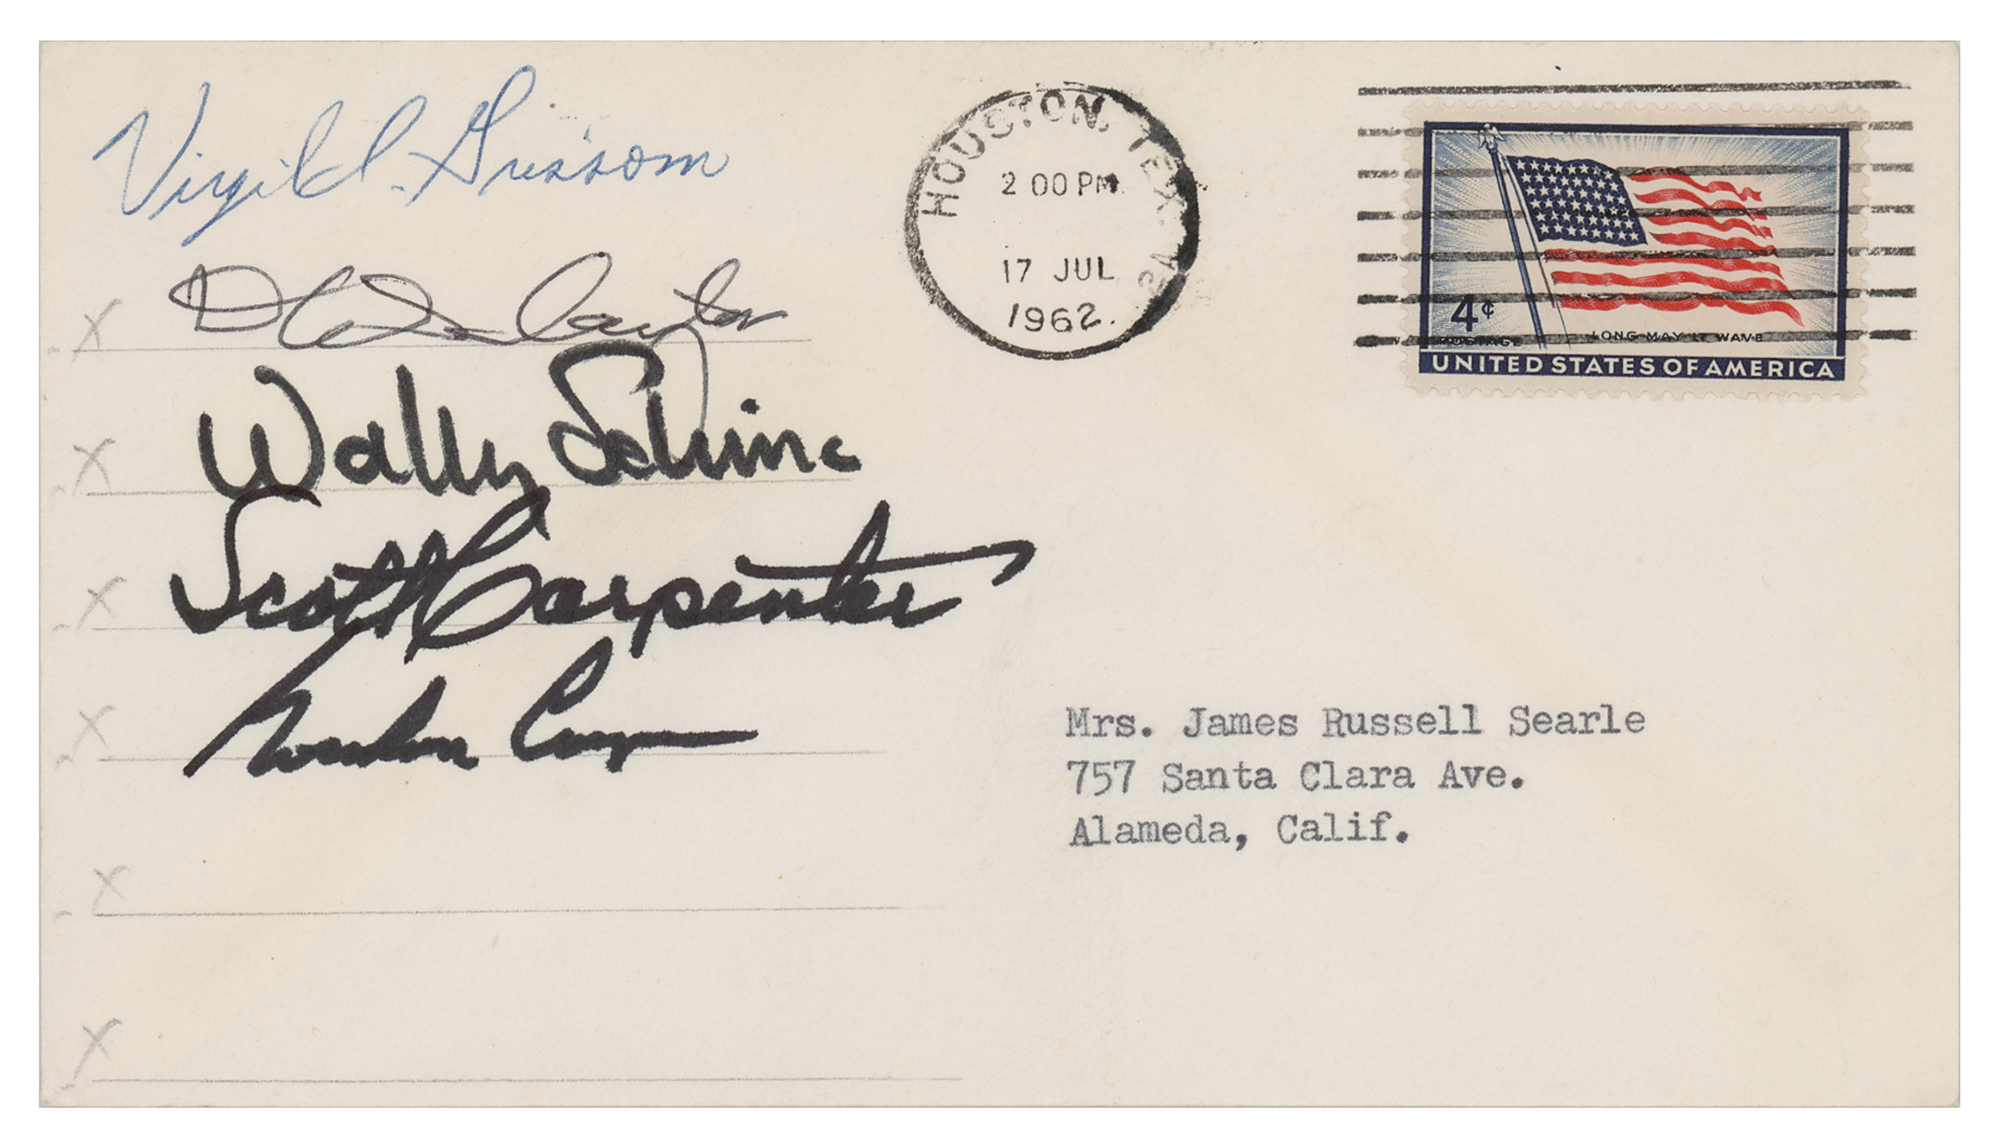 Virgil I. Grissom
D K Slayton
Wally Schirra
Scott Carpenter
Gordon Cooper
HOUSTON, TEX.
2 00 PM
17 JUL
1962
4¢
POSTAGE
LONG MAY IT WAVE
UNITED STATES OF AMERICA
Mrs. James Russell Searle
757 Santa Clara Ave.
Alameda, Calif.
X
X
X
X
X
X